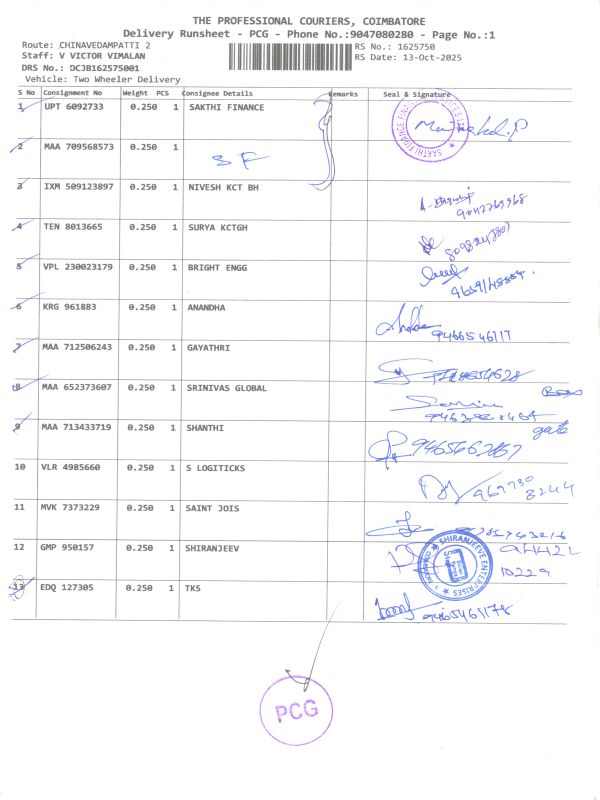 THE PROFESSIONAL COURIERS, COIMBATORE
Delivery Runsheet - PCG - Phone No.:9047080280 - Page No.:1
Route: CHINAVEDAMPATTI 2
RS No.: 1625750
Staff: V VICTOR VIMALAN
RS Date: 13-Oct-2025
DRS No.: DCJB162575001
Vehicle: Two Wheeler Delivery
S No Consignment No Weight PCS Consignee Details Remarks Seal & Signature
1 UPT 6092733 0.250 1 SAKTHI FINANCE
2 MAA 709568573 0.250 1 SF
3 IXM 509123897 0.250 1 NIVESH KCT BH
4 TEN 8013665 0.250 1 SURYA KCTGH
5 VPL 230023179 0.250 1 BRIGHT ENGG
6 KRG 961883 0.250 1 ANANDHA
7 MAA 712506243 0.250 1 GAYATHRI
8 MAA 652373607 0.250 1 SRINIVAS GLOBAL
9 MAA 713433719 0.250 1 SHANTHI gate
10 VLR 4985660 0.250 1 S LOGITICKS 967730
8244
11 MVK 7373229 0.250 1 SAINT JOIS
12 GMP 950157 0.250 1 SHIRANJEEV SHIRANJEEVE ENTERPRISES
10229
13 EDQ 127305 0.250 1 TKS 9465461178
PCG